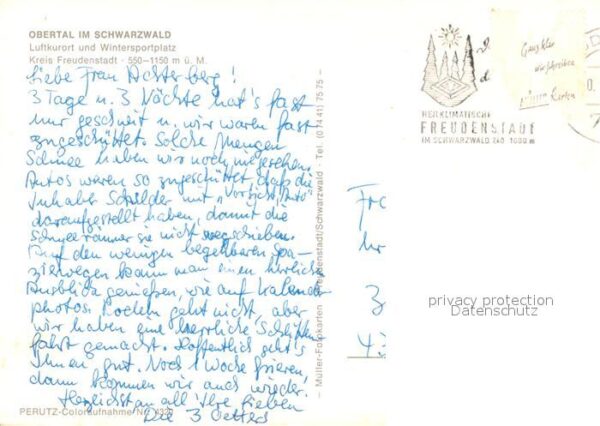 OBERTAL IM SCHWARZWALD
Luftkurort und Wintersportplatz
Kreis Freudenstadt · 550–1150 m ü. M.
Liebe Frau Achterberg!
3 Tage u. 3 Nächte hat's fast
nur geschneit u. wir waren fast
zugeschüttet. Solche Mengen
Schnee haben wir noch nie gesehen.
Autos waren so zugeschüttet, daß die
Inhaber Schilder mit "Vorsicht, Auto"
daraufgestellt haben, damit die
Schneeräumer sie nicht wegschieben.
Auf den wenigen begehbaren Spa-
zierwegen kann man einen herrlichen
Ausblick genießen, wie auf Kalender
photos. Rodeln geht nicht, aber
wir haben eine herrliche Schlitten
fahrt gemacht. Hoffentlich geht's
Ihnen gut. Noch 1 Woche frieren,
dann kommen wir auch wieder!
Herzlichst an all Ihre Lieben
Die 3 Oetters
PERUTZ-Coloraufnahme Nr.
– Müller-Fotokarten · Freudenstadt/Schwarzwald · Tel. (0 74 41) 75 75 –
HEILKLIMATISCHE
FREUDENSTADT
IM SCHWARZWALD 740–1000 m
Fr
3
privacy protection
Datenschutz